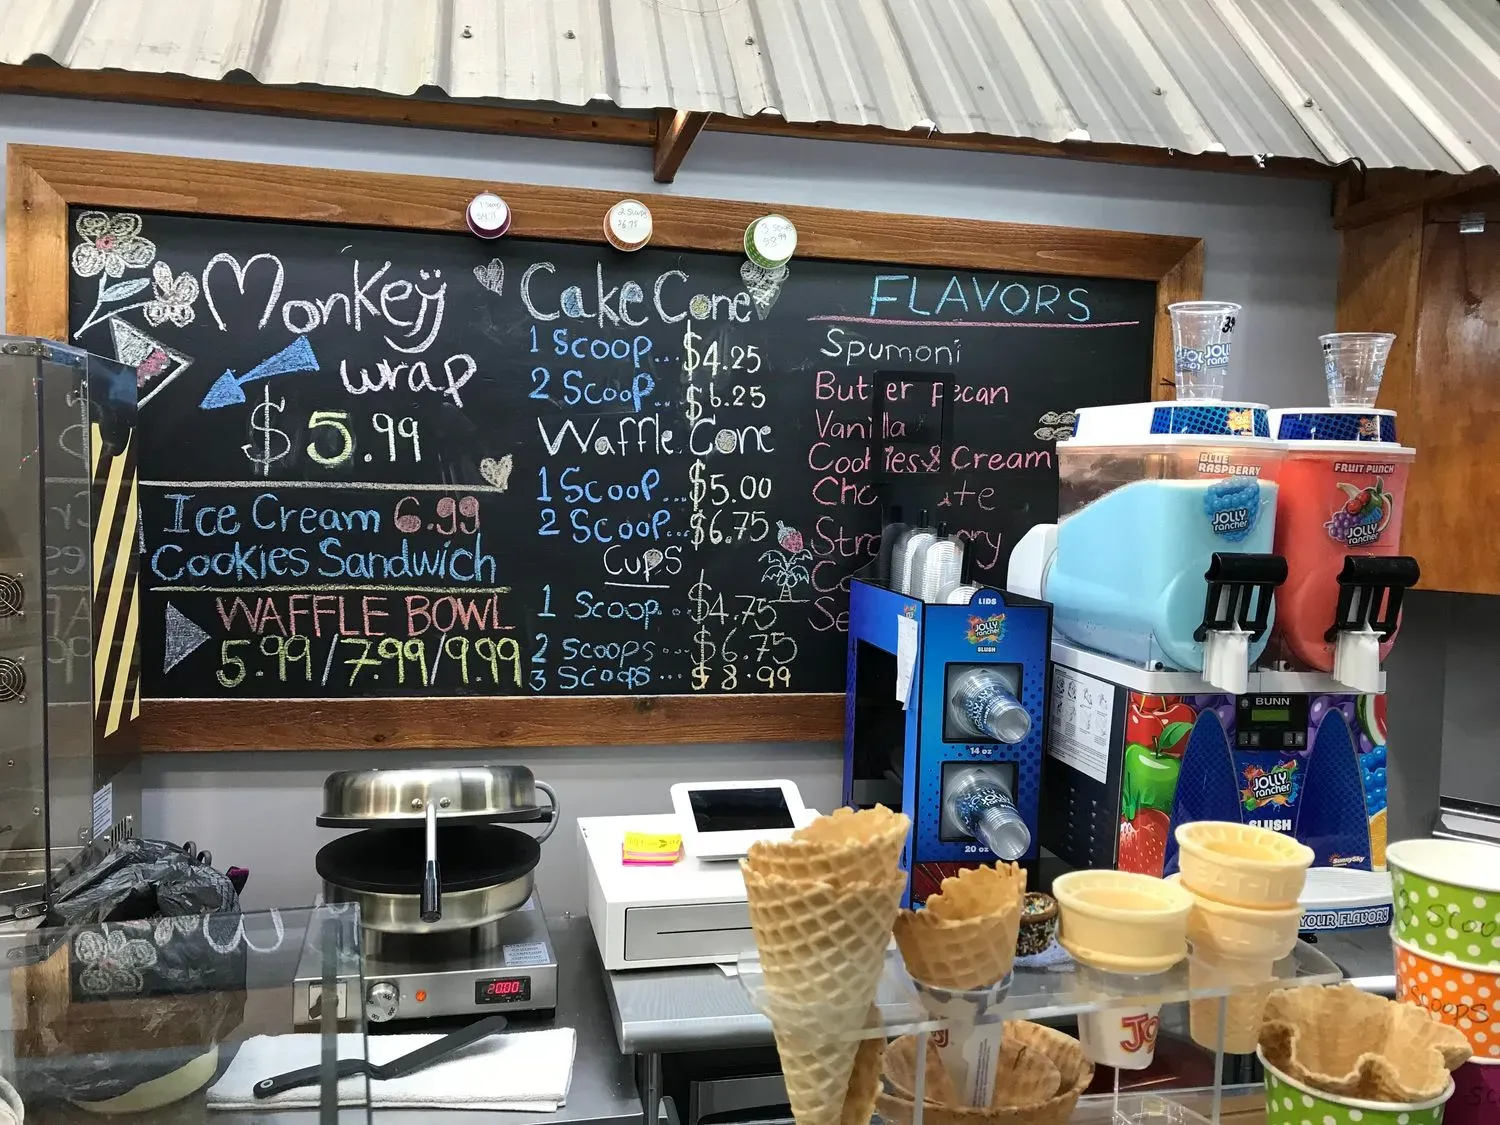 1 Scoop
$4.75
2 Scoops
$6.75
3 Scoops
$8.99
Monkey
wrap
$5.99
Ice Cream 6.99
Cookies Sandwich
WAFFLE BOWL
5.99/7.99/9.99
Cake Cone
1 Scoop... $4.25
2 Scoop.. $6.25
Waffle Cone
1 Scoop... $5.00
2 Scoop... $6.75
Cups
1 Scoop... $4.75
2 scoops... $6.75
3 Scoops... $8.99
FLAVORS
Spumoni
Butter pecan
Vanilla
Cookies & Cream
JOLLY
rancher
BLUE
RASPBERRY
JOLLY
rancher
FRUIT PUNCH
JOLLY
rancher
LIDS
JOLLY
rancher
SLUSH
14 oz
20 oz
BUNN
JOLLY
rancher
SLUSH
SunnySky
YOUR FLAVOR!
20.00
3 Scoo
Scoops